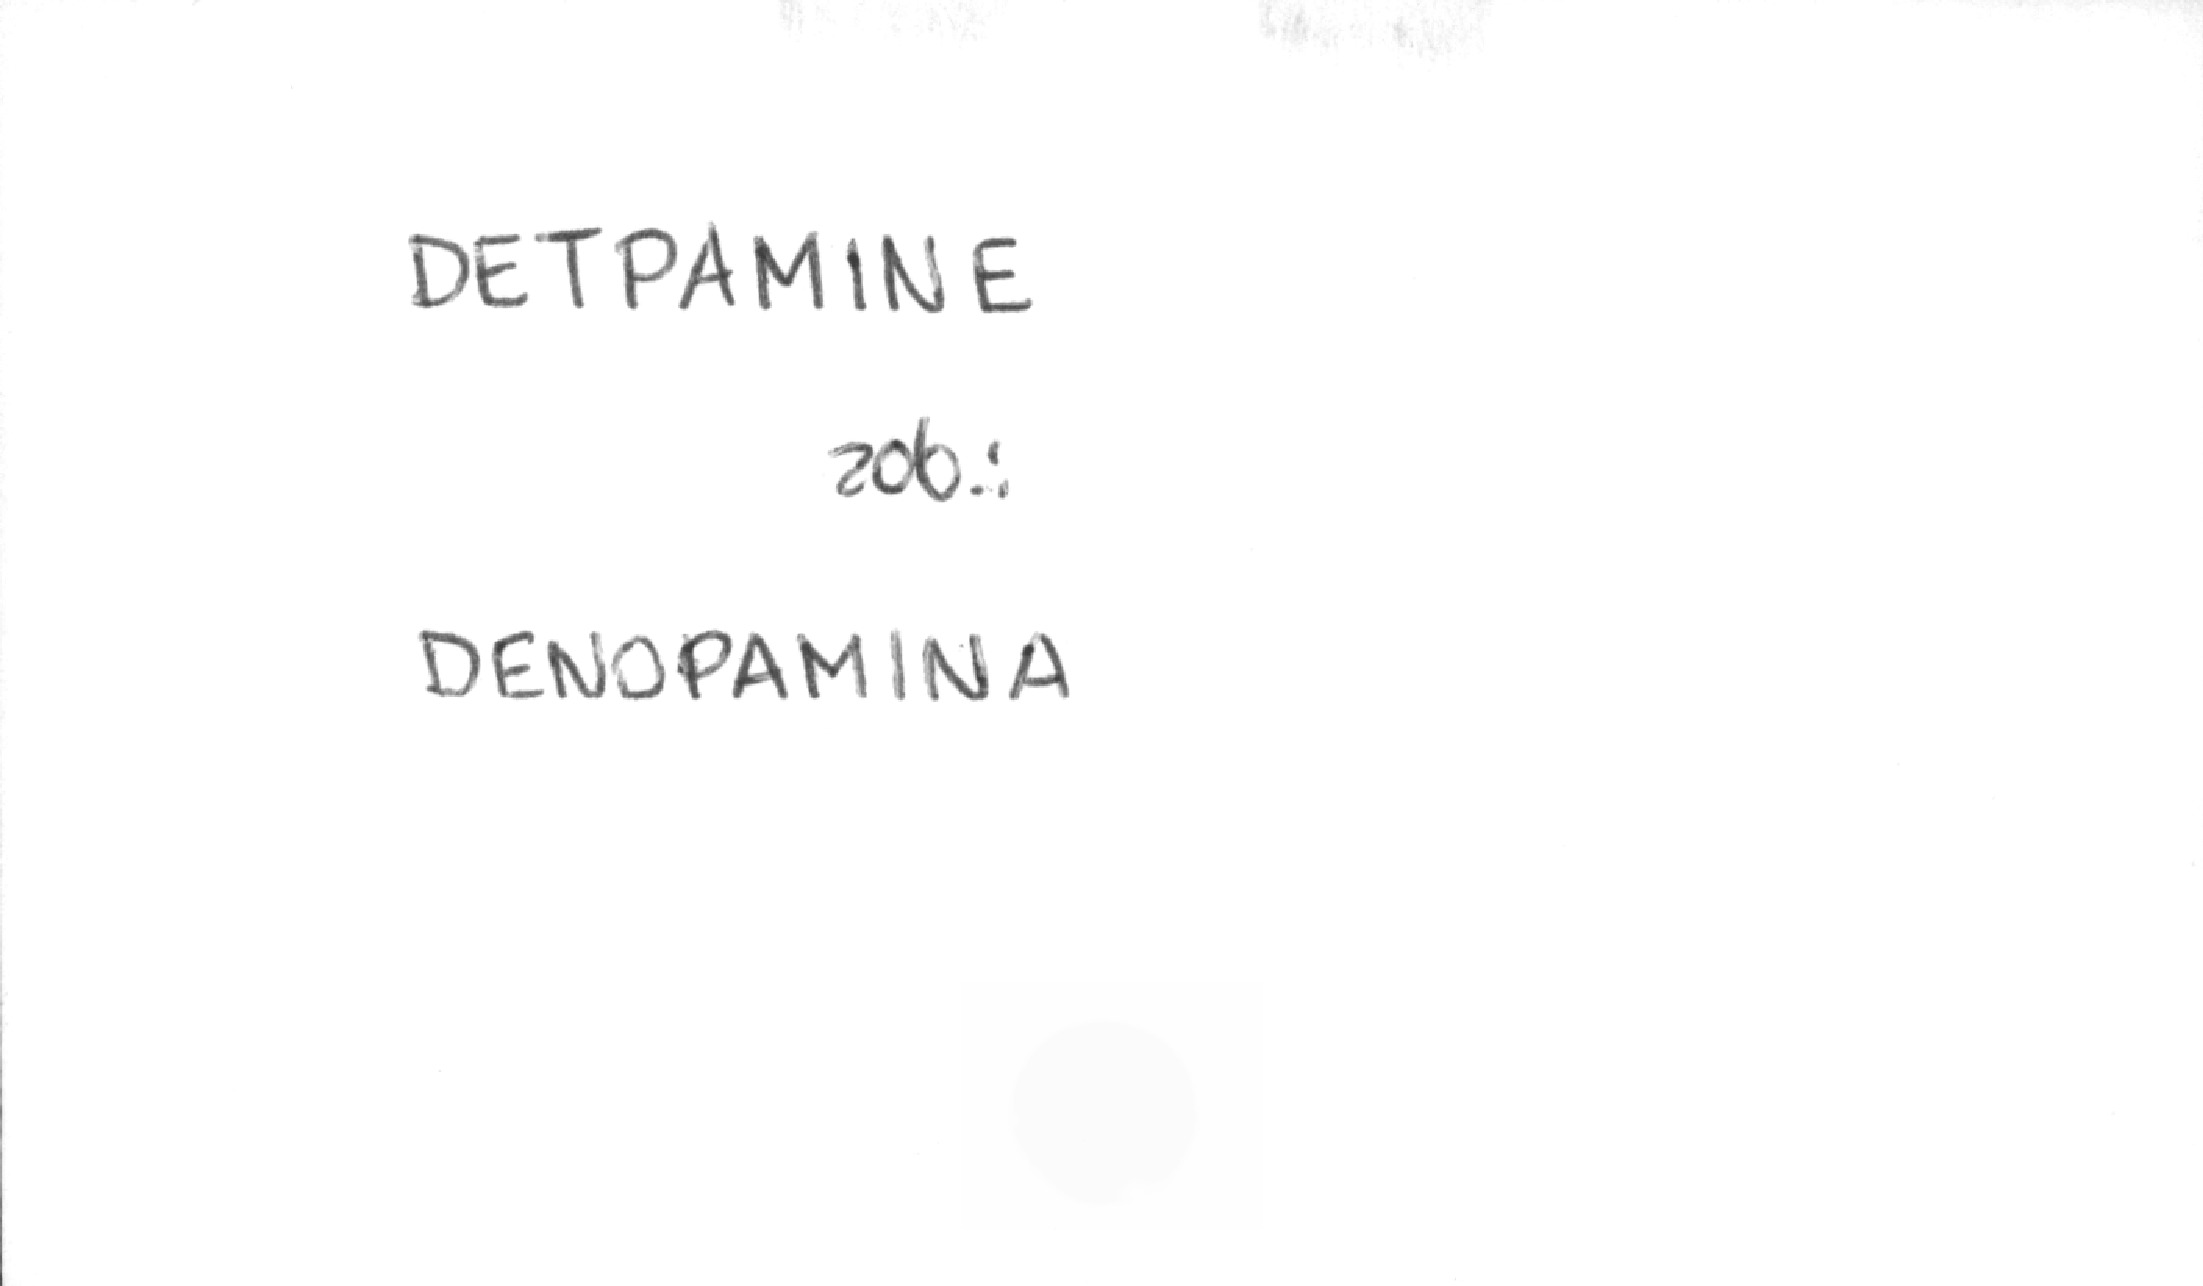 DETPAMINE
zob.:
DENOPAMINA